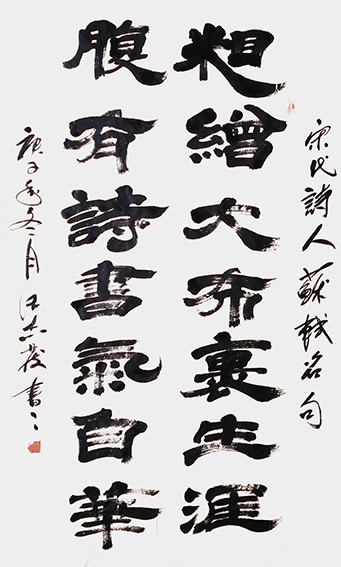 宋代詩人蘇軾名句
粗繒大布裹生涯
腹有詩書氣自華
庚子年冬月